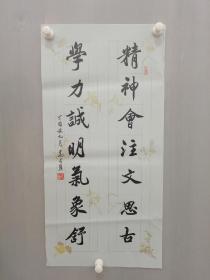 精神會注文思古
學力誠明氣象舒